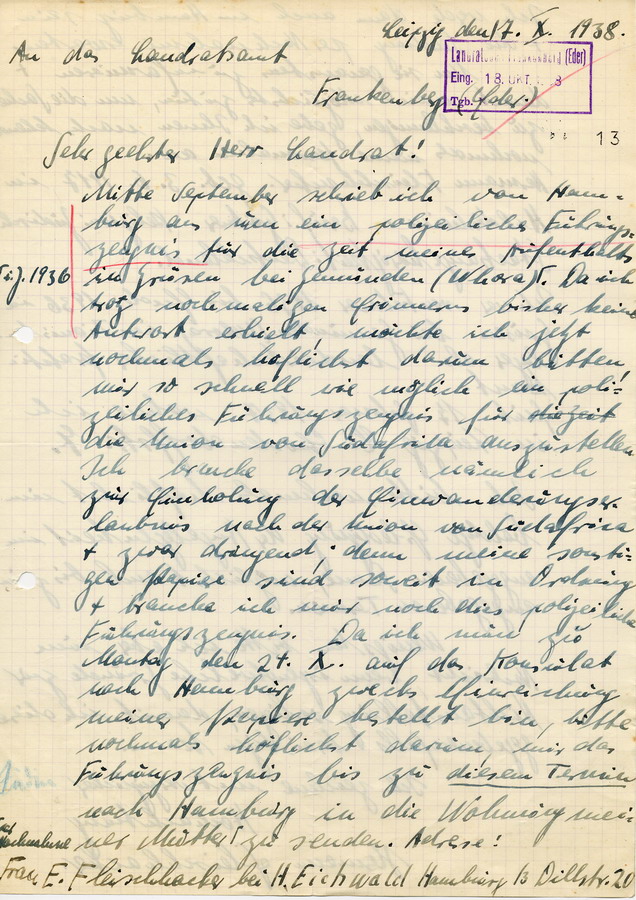 Leipzig den 17. X. 1938.
An das Landratsamt
Frankenberg (Eder.)
Landratsamt Frankenberg (Eder)
Eing. 18. OKT. 8
Tgb.
13
Sehr geehrter Herr Landrat!
Mitte September schrieb ich von Ham-
burg aus um ein polizeiliches Führungs-
zeugnis für die Zeit meines Aufenthalts
i. J. 1936
in Grüsen bei Gemünden (Whora). Da ich
trotz nochmaligen Erinnerns bisher keine
Antwort erhielt, möchte ich jetzt
nochmals höflichst darum bitten,
mir so schnell wie möglich ein poli-
zeiliches Führungszeugnis für die Zeit
die Union von Südafrika auszustellen
Ich brauche dasselbe nämlich
zur Einholung der Einwanderungser-
laubnis nach der Union von Südafrica
+ zwar dringend, denn meine sonsti-
gen Papiere sind soweit in Ordnung
+ brauche ich nur noch dies polizeiliche
Führungszeugnis. Da ich nun zu
Montag den 24. X. auf das Konsulat
nach Hamburg zwecks Einreichung
meiner Papiere bestellt bin, bitte
nochmals höflichst darum, mir das
Führungszeugnis bis zu diesem Termin
nach Hamburg in die Wohnung mei-
per Nachnahme
ner Mutter zu senden. Adresse!
Frau E. Fleischhacker bei H. Eichwald Hamburg 13 Dillstr. 20